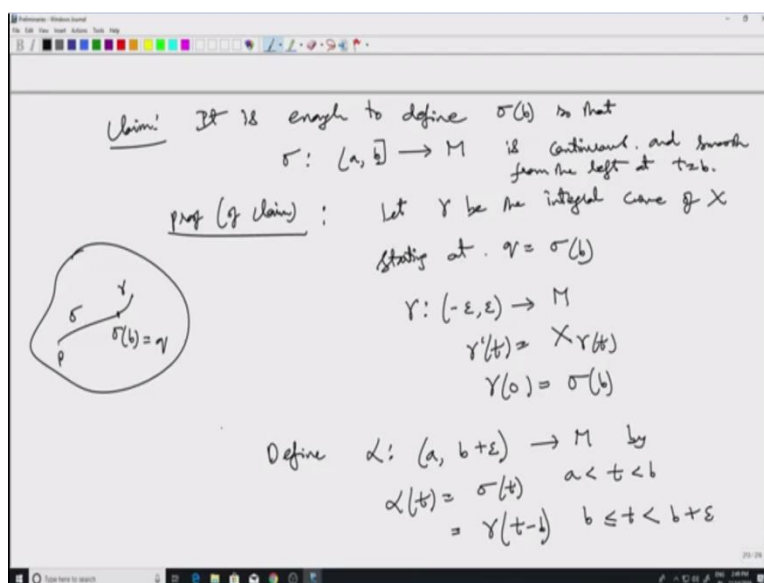 Preliminaries - Windows Journal
File Edit View Insert Actions Tools Help
Claim: It is enough to define σ(b) so that
σ: (a, b] → M is continuous. and smooth
from the left at t=b.
proof (of claim) : Let γ be the integral curve of X
starting at. q = σ(b)
γ: (-ε, ε) → M
γ'(t) = X γ(t)
γ(0) = σ(b)
γ
σ
σ(b) = q
p
Define α: (a, b+ε) → M by
α(t) = σ(t) a < t < b
= γ(t-b) b ≤ t < b+ε
Type here to search